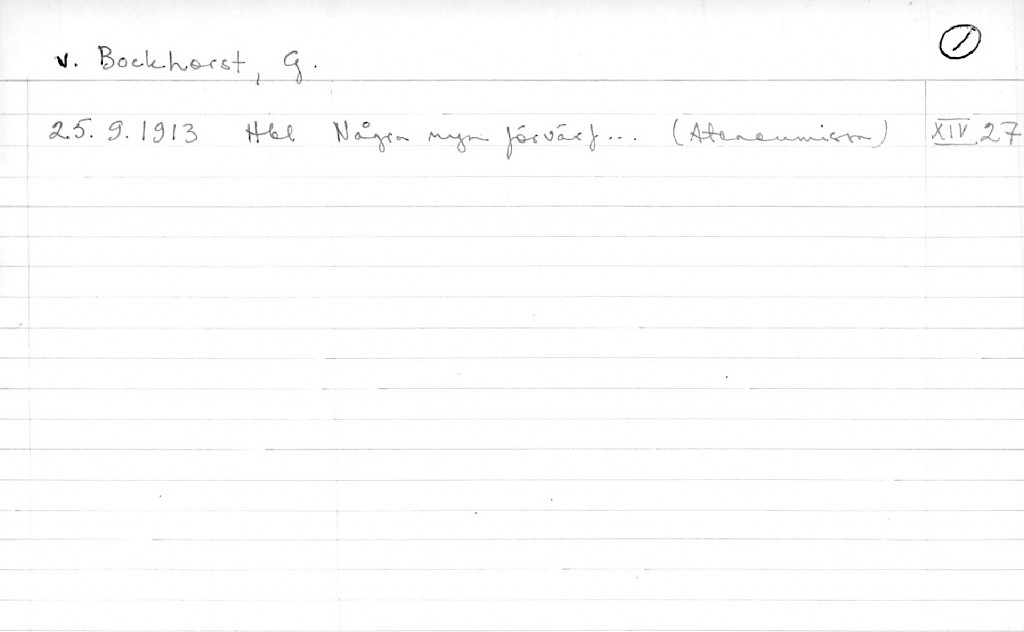 v. Bockhorst, G.
1
25.9.1913 Hbl Några nya förvärf... (Ateneumissa) XIV 27